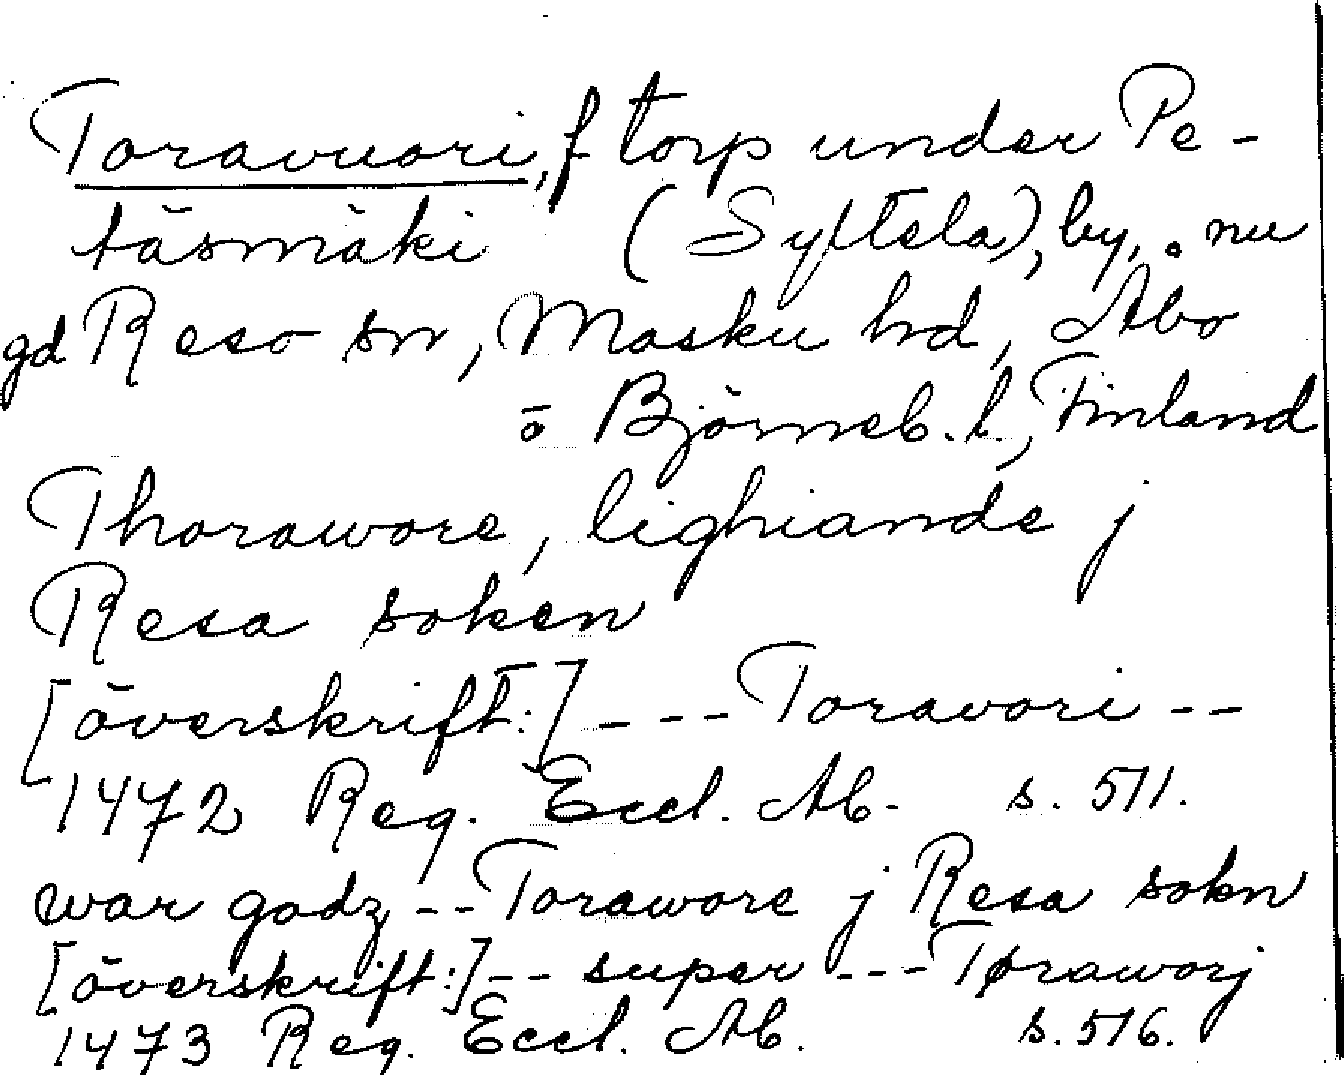 Toravuori, f torp under Pe-
täsmäki (Syltela), by, nu
gd Reso sn, Masku hd, Åbo
o Björneb. l., Finland
Thorawore, lighiande j
Resa soken
[överskrift:] --- Toravori --
1472 Reg. Eccl. Ab. s. 511.
war godz -- Torawore j Resa sokn
[överskrift:] -- super --- Tøraworj
1473 Reg. Eccl. Ab. s. 516.